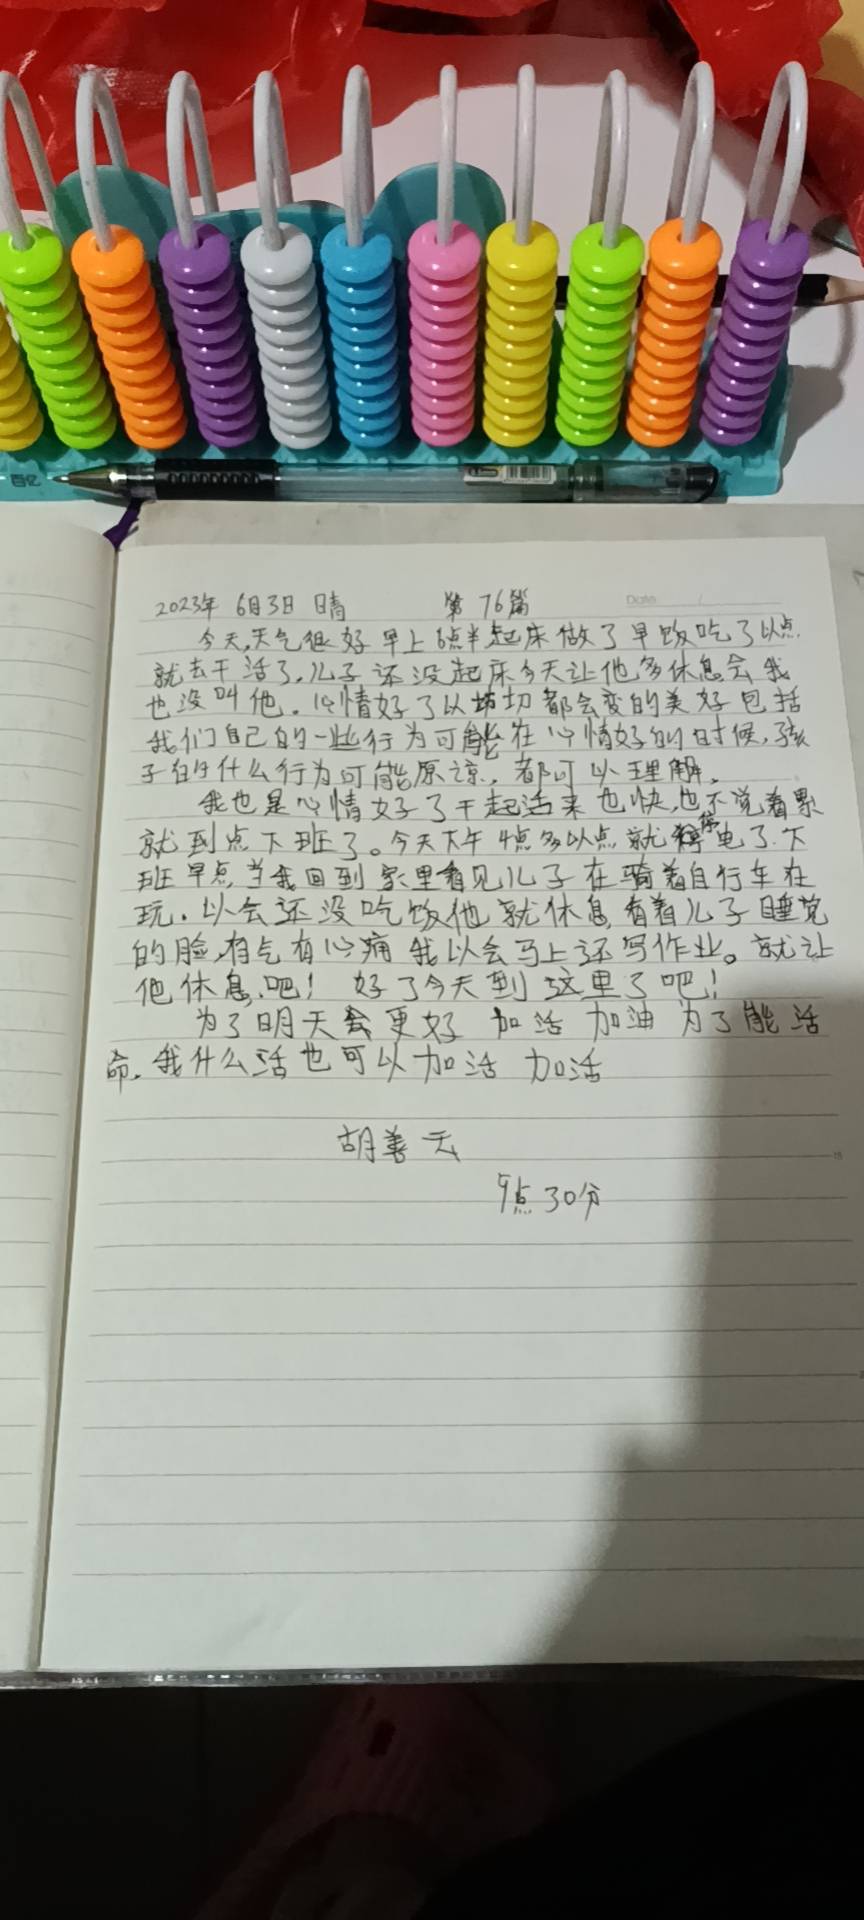 百亿
2023年 6月3日 晴 第76篇
Date /
今天,天气很好早上6点半起床做了早饭吃了以点
就去干活了,儿子还没起床今天让他多休息会我
也没叫他。心情好了以切都会变的美好包括
我们自己的一些行为可能在心情好的时候,孩
子的什么行为可能原谅,都可以理解。
我也是心情好了干起活来也快,也不觉着累
就到点下班了。今天下午4点多以点就停电了.下
班早点,当我回到家里看见儿子在骑着自行车在
玩.以会还没吃饭他就休息,看着儿子睡觉
的脸,有气有心痛我以会马上还写作业。就让
他休息,吧!好了今天到这里了吧!
为了明天会更好 加活 加油 为了能活
命.我什么活也可以加活 加活
胡善云
9点30分